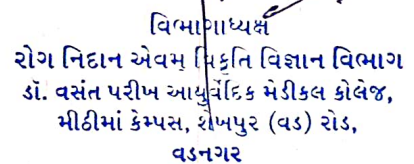 વિભાગાધ્યક્ષ
રોગ નિદાન એવમ્ વિકૃતિ વિજ્ઞાન વિભાગ
ડૉ. વસંત પરીખ આયુર્વેદિક મેડીકલ કોલેજ,
મીઠીમાં કેમ્પસ, શેખપુર (વડ) રોડ,
વડનગર